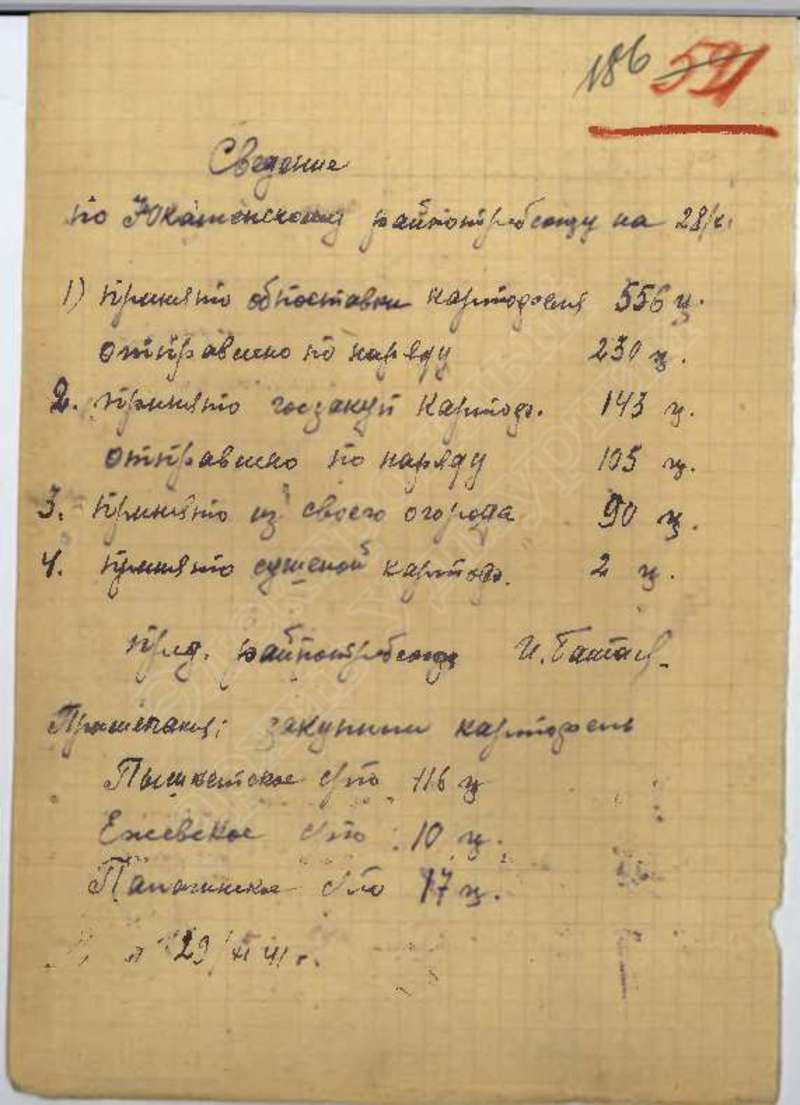 186 521
Сведение
по Юкаменскому райпотребсоюзу на 28/XI
1) принято обпоставки картофеля 556 ц.
отправлено по наряду 230 ц.
2. принято госзакуп картоф. 143 ц.
отправлено по наряду 105 ц.
3. принято из своего огорода 90 ц.
4. принято сушеной картоф. 2 ц.
пред. райпотребсоюза И.
Примечания: закупили картофель
Пышкетское с/по 116 ц
Ежевское с/по : 10 ц.
с/по 17 ц.
29/XI 41 г.